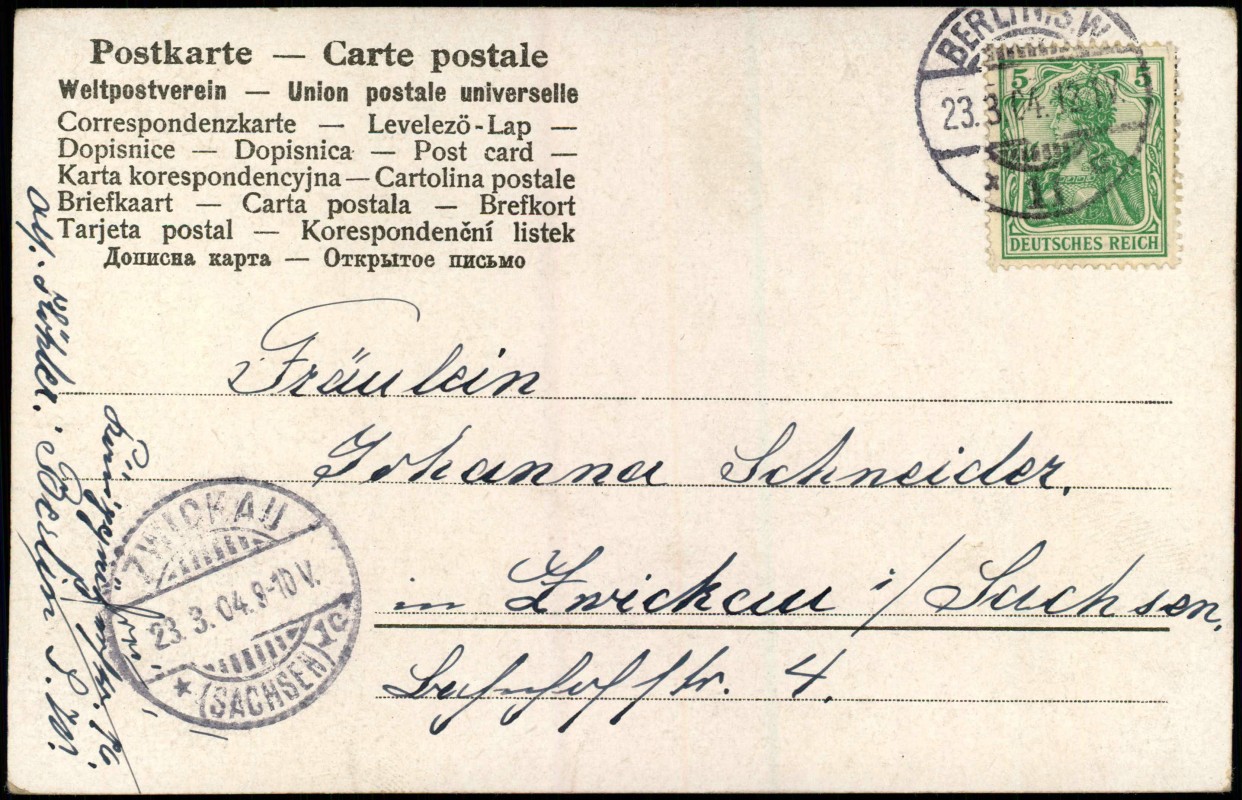 Postkarte — Carte postale
Weltpostverein — Union postale universelle
Correspondenzkarte — Levelezö-Lap —
Dopisnice — Dopisnica — Post card —
Karta korespondencyjna — Cartolina postale
Briefkaart — Carta postala — Brefkort
Tarjeta postal — Korespondenční listek
Дописна карта — Открытое письмо
BERLIN S.W.
23.3.
11
5 5
DEUTSCHES REICH
Fräulein
Johanna Schneider,
in Zwickau i/Sachsen,
Bahnhofstr. 4.
ZWICKAU
23.3.04.9-10V.
* (SACHSEN)
Abs. Köhler. Berlin S.W.